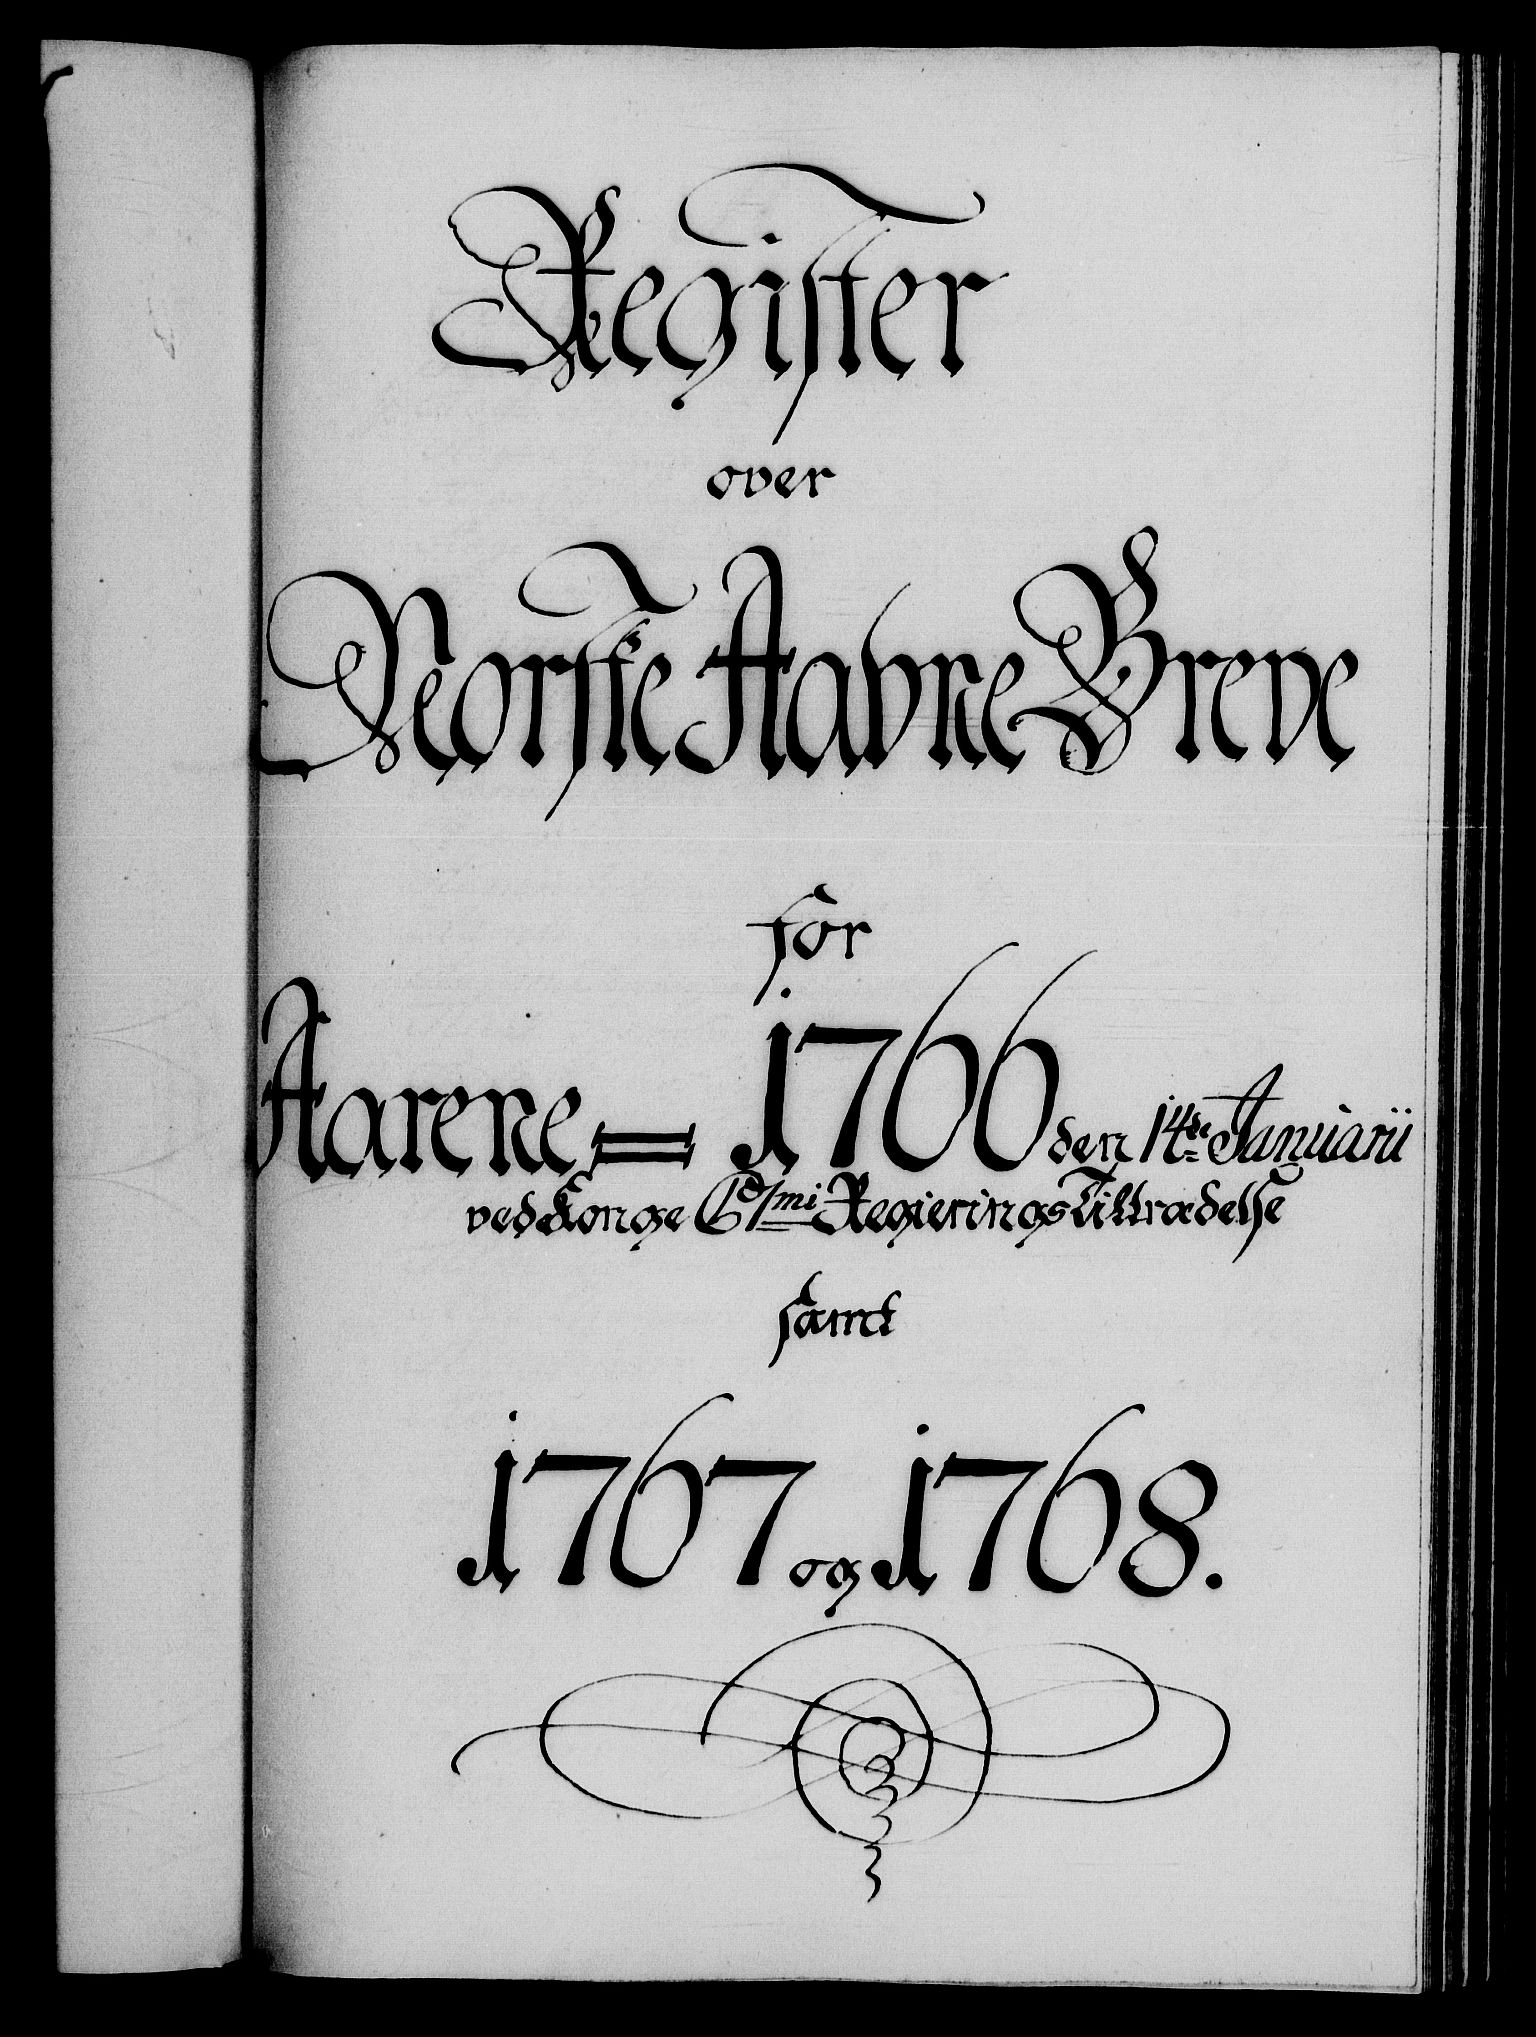 Register
over
Norske Aabne Breve
for
Aarene = 1766 den 14de Januarii
ved Konge Regierings Tiltrædelse
samt
1767 og 1768.